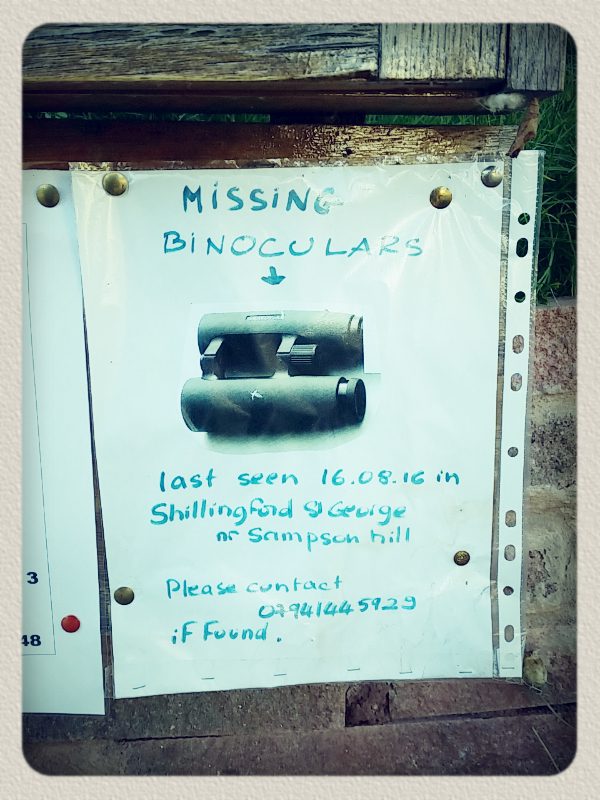 MISSING
BINOCULARS
last seen 16.08.16 in
Shillingford St George
nr Sampson hill
Please contact
07941445929
if Found.
3
48